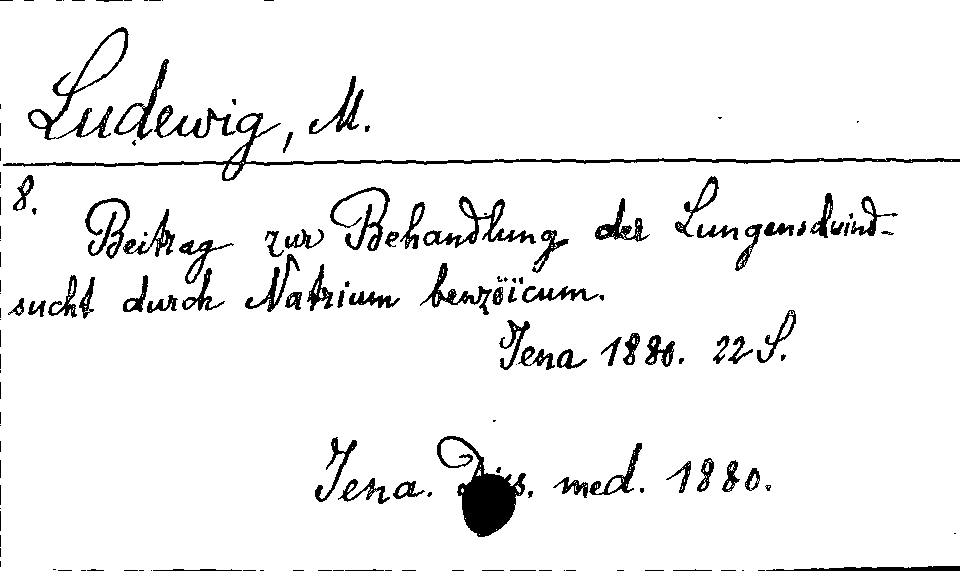 Ludewig, M.
8.
Beitrag zur Behandlung der Lungenschwind-
sucht durch Natrium benzöïcum.
Jena 1880. 22 S.
Jena. Diss. med. 1880.